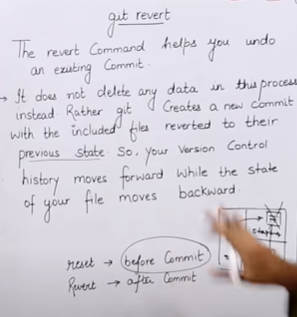 git revert
The revert Command helps you undo
an existing Commit.
→ It does not delete any data in this process
instead. Rather git Creates a new commit
with the included files reverted to their
previous state. So, your Version Control
history moves forward while the state
of your file moves backward.
reset → before Commit
Revert → after Commit